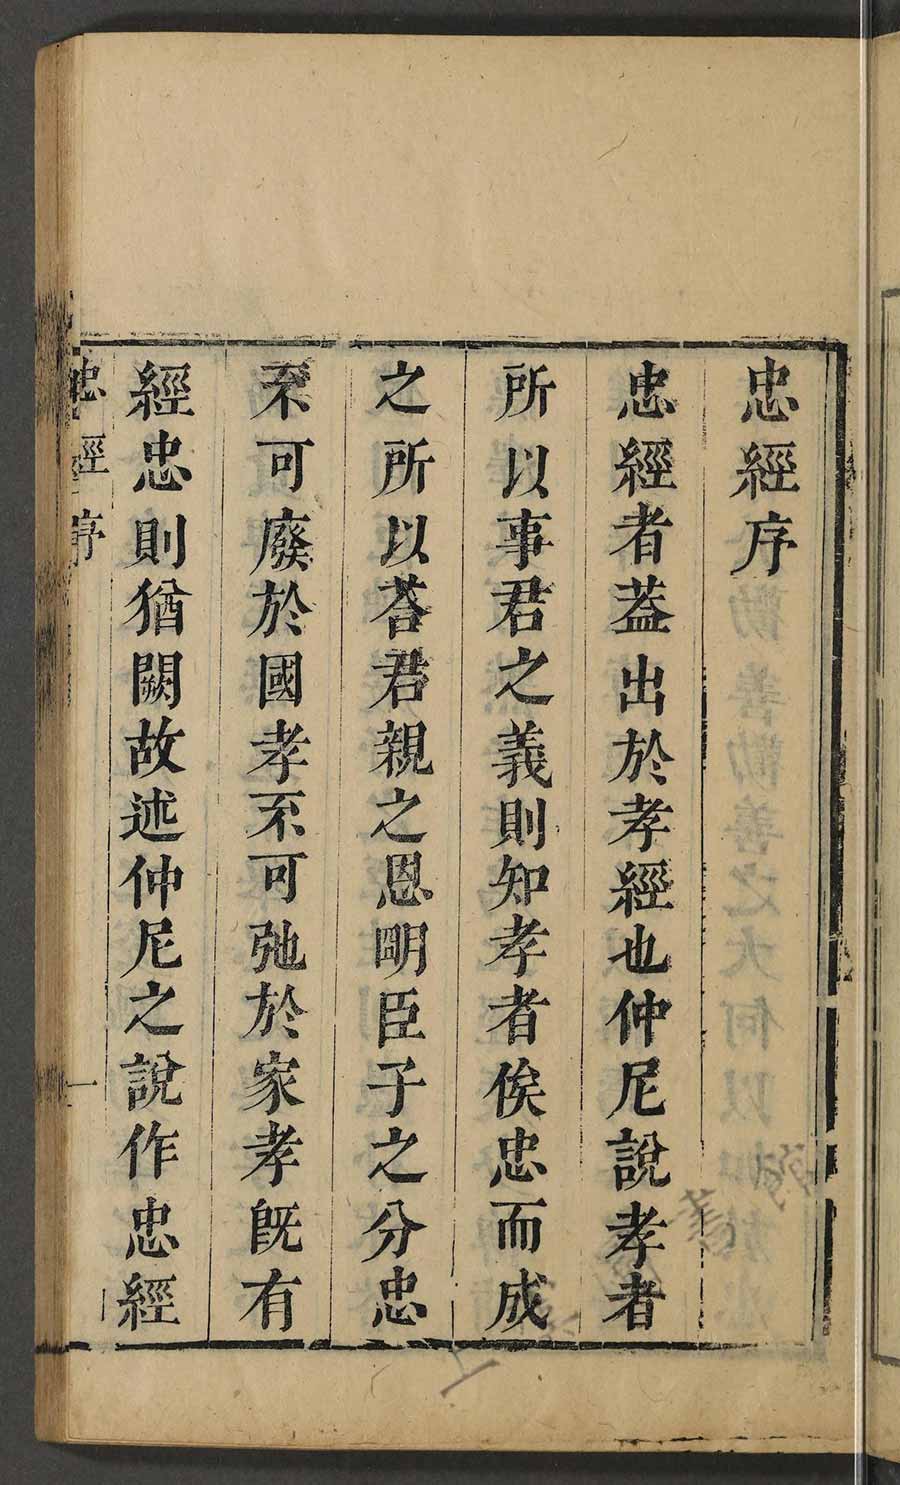 忠經序
忠經者葢出於孝經也仲尼說孝者
所以事君之義則知孝者俟忠而成
之所以荅君親之恩明臣子之分忠
不可廢於國孝不可弛於家孝旣有
經忠則猶闕故述仲尼之說作忠經
忠經序
一